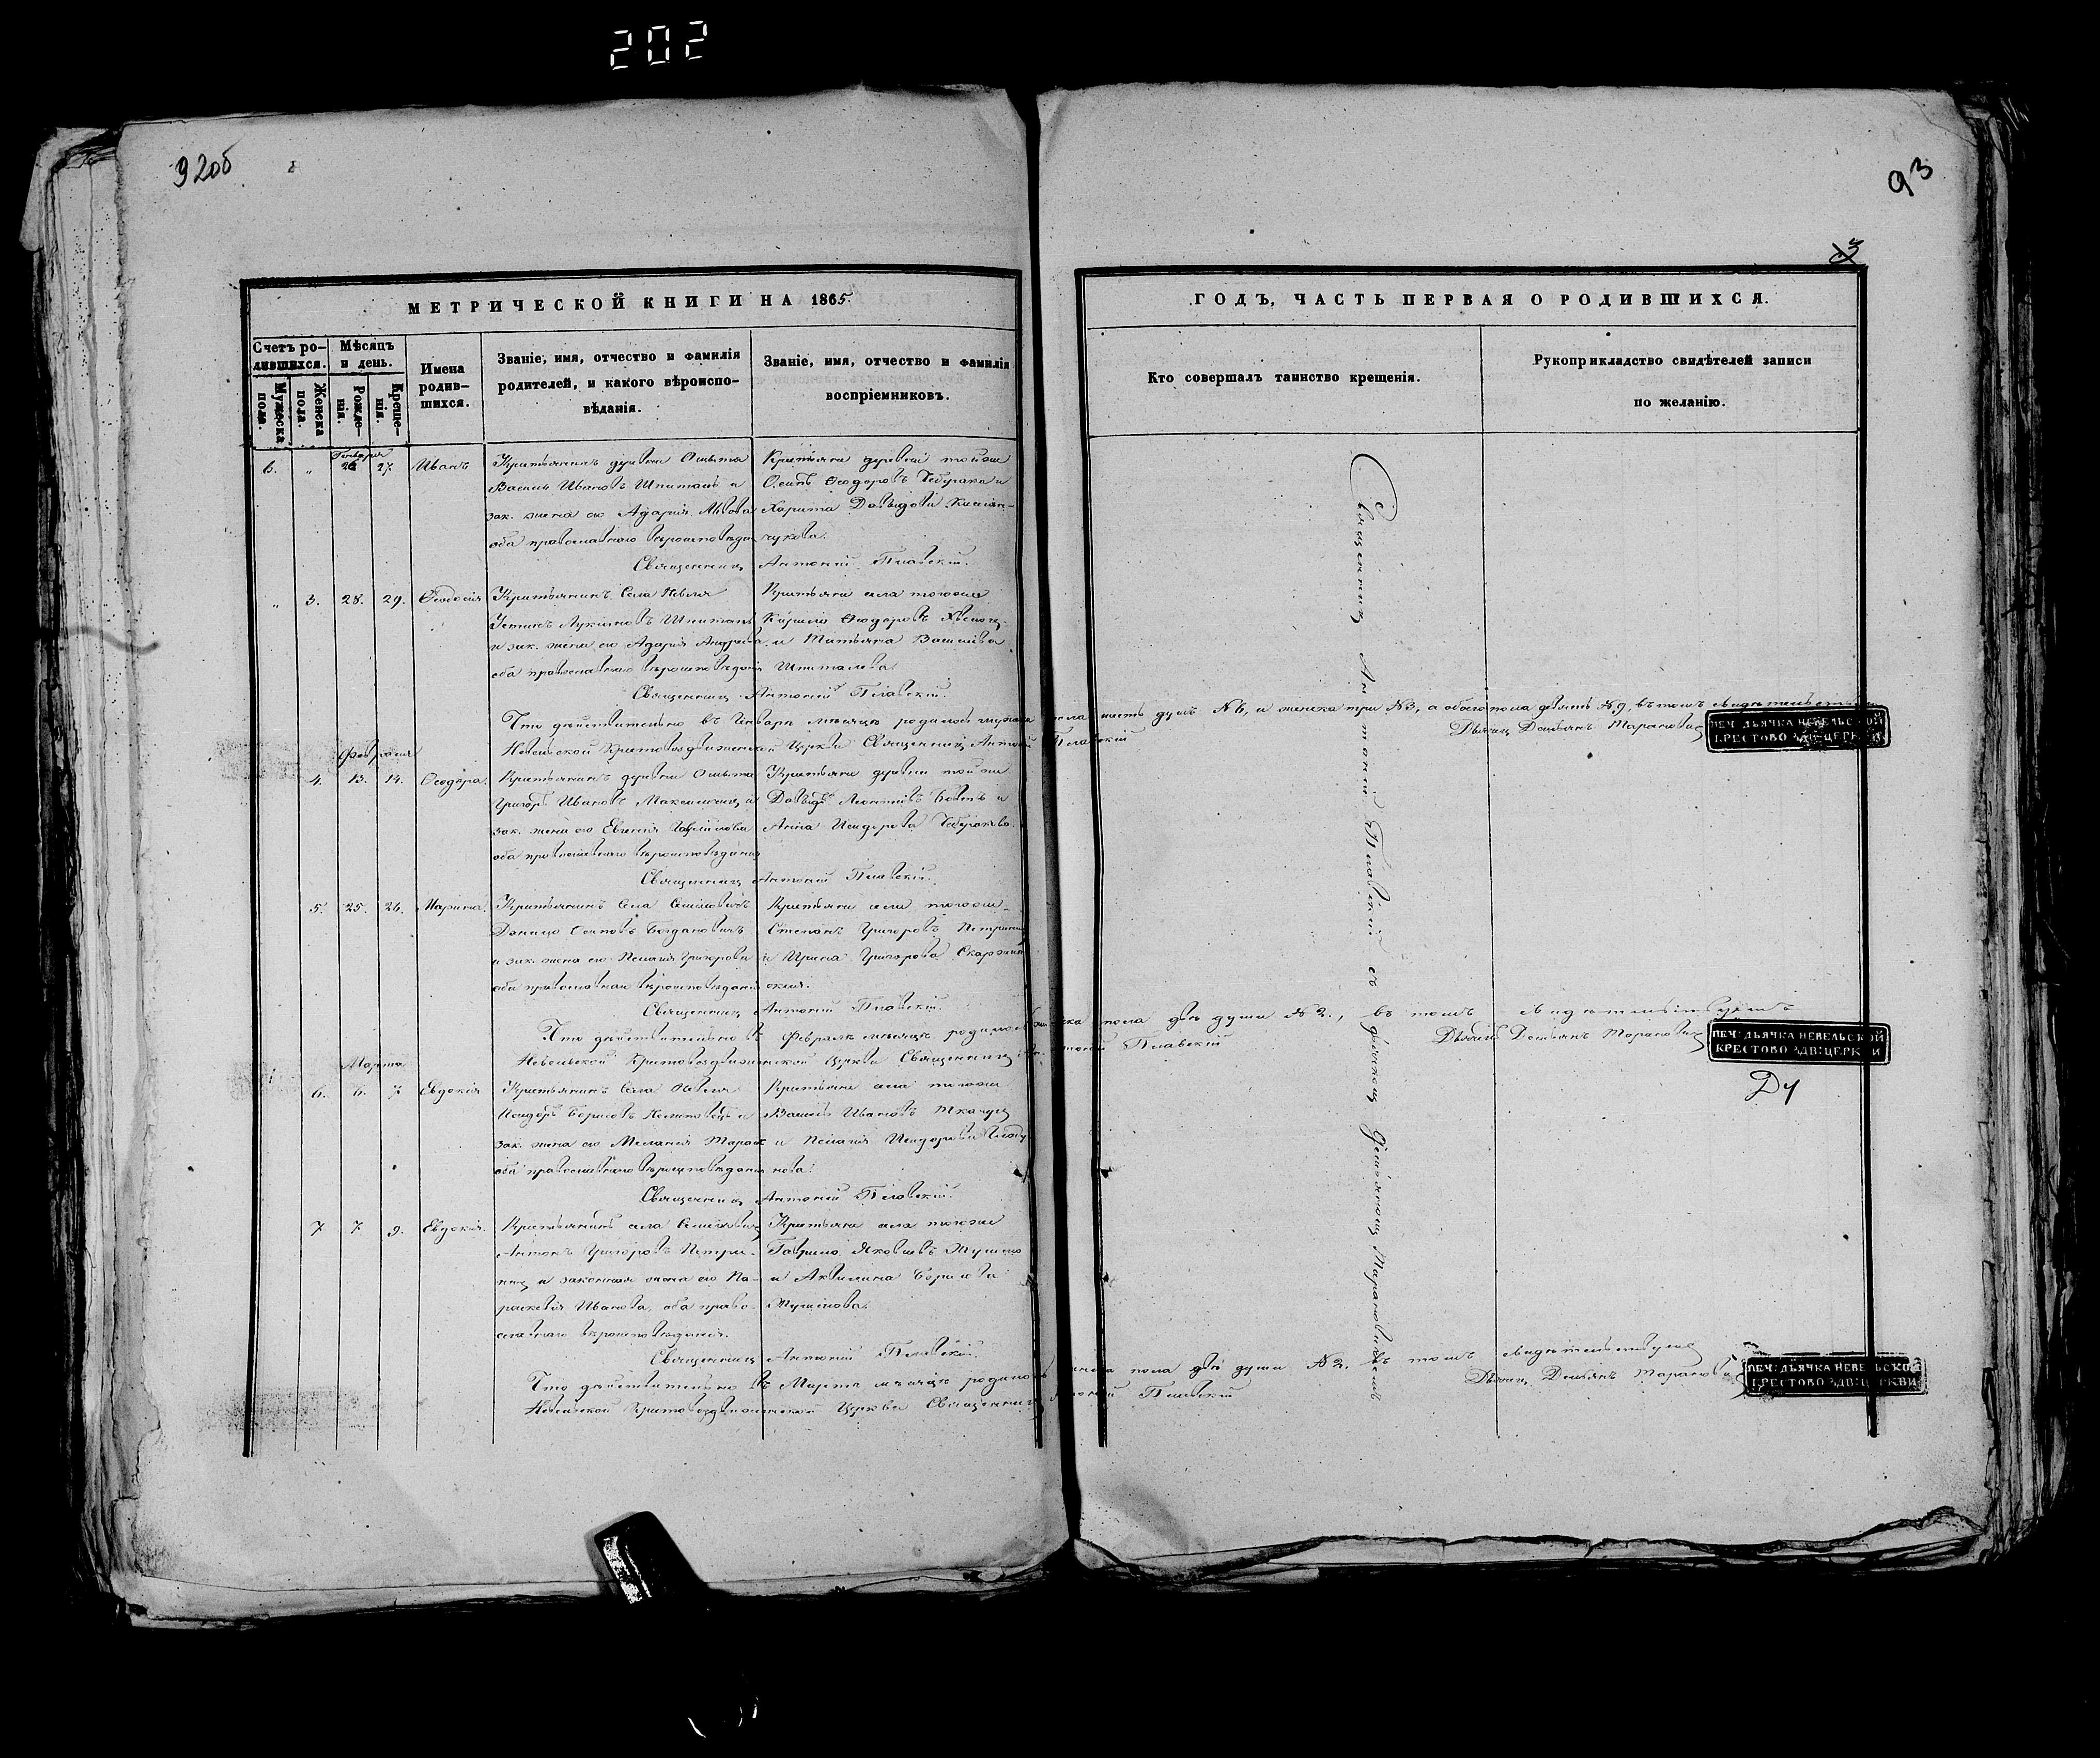 202
92об
93
3
МЕТРИЧЕСКОЙ КНИГИ НА 1865
ГОДЪ, ЧАСТЬ ПЕРВАЯ О РОДИВШИХСЯ.
Счетъ ро-
дившихся.
Мужеска
пола.
Женска
пола.
Мѣсяцъ
и день.
Рожде-
нія.
Креще-
нія.
Имена
родив-
шихся.
Званіе, имя, отчество и фамилія
родителей, и какого вѣроиспо-
вѣданія.
Званіе, имя, отчество и фамилія
воспріемниковъ.
Кто совершалъ таинство крещенія.
Рукоприкладство свидѣтелей записи
по желанію.
Генваря
6. " 26 27 Иванъ
Крестьянинъ деревни
Василій Ивановъ Шпиталь и
зак. жена его
оба православнаго вѣроисповѣд
Крестьяне деревни тойже
Осипъ Ѳеодоровъ и
Харита Давыдова
Священникъ Антоній Плавскій.
" 3. 28. 29. Ѳеодосія
Крестьянинъ Села Невля
Устинъ Лукіановъ Шпиталь
и зак. жена его Андреева
оба православнаго вѣроисповѣданія
Крестьяне села тогоже
Кирило Ѳеодоровъ
и Татьяна Василіева
Шпиталева.
Священникъ Антоній Плавскій.
Что дѣйствительно въ Генварѣ мѣсяцѣ родилось мужеска пола шесть душъ №6, и женска три №3, а обоего пола девять №9, въ томъ свидѣтельствуемъ
Невельской Крестовоздвиженской Церкви Священникъ Антоній Плавскій
Дьячекъ Демьянъ Тарановичъ
ПЕЧ: ДЬЯЧКА НЕВЕЛЬСКОЙ
КРЕСТОВОЗДВ: ЦЕРКВИ
Февраля
4. 13. 14. Ѳеодора.
Крестьянинъ деревни
Григорій Ивановъ и
зак. жена его Евгенія
оба православнаго вѣроисповѣданія
Крестьяне деревни тойже
Давыдъ Леонтіевъ и
Анна
Священникъ Антоній Плавскій.
5. 25. 26. Марина.
Крестьянинъ Села
Данило Осиповъ Богдановичъ
и зак. жена его Пелагія Григорьева
оба православнаго вѣроисповѣданія
Крестьяне села тогоже
Степанъ Григоровъ
и Ирина Григорова
Священникъ Антоній Плавскій.
Что дѣйствительно въ Февралѣ мѣсяцѣ родилось женска пола двѣ души №2., въ томъ свидѣтельствуемъ
Невельской Крестовоздвиженской Церкви Священникъ Антоній Плавскій
Дьячекъ Демьянъ Тарановичъ
ПЕЧ: ДЬЯЧКА НЕВЕЛЬСКОЙ
КРЕСТОВОЗДВ: ЦЕРКВИ
Марта
6. 6. 7 Евдокія
Крестьянинъ Села Невля
Борисовъ
зак. жена его Меланія
оба православнаго вѣроисповѣданія
Крестьяне села тогоже
Василь Ивановъ Ткачукъ
и Пелагія
Священникъ Антоній Плавскій.
7 7 9. Евдокія.
Крестьянинъ села
Антонъ Григоровъ Петри-
и законная жена его Па-
раскевія Иванова, оба право-
славнаго вѣроисповѣданія.
Крестьяне села тогоже
Гаврило Яковлевъ
и Акилина Борисова
Священникъ Антоній Плавскій.
Что дѣйствительно въ Мартѣ мѣсяцѣ родилось женска пола двѣ души №2. въ томъ свидѣтельствуемъ
Невельской Крестовоздвиженской Церкви Священникъ Антоній Плавскій
Дьячекъ Демьянъ Тарановичъ
ПЕЧ: ДЬЯЧКА НЕВЕЛЬСКОЙ
КРЕСТОВОЗДВ: ЦЕРКВИ
Священникъ Антоній Плавскій съ дьячкомъ Деміяномъ Тарановичемъ